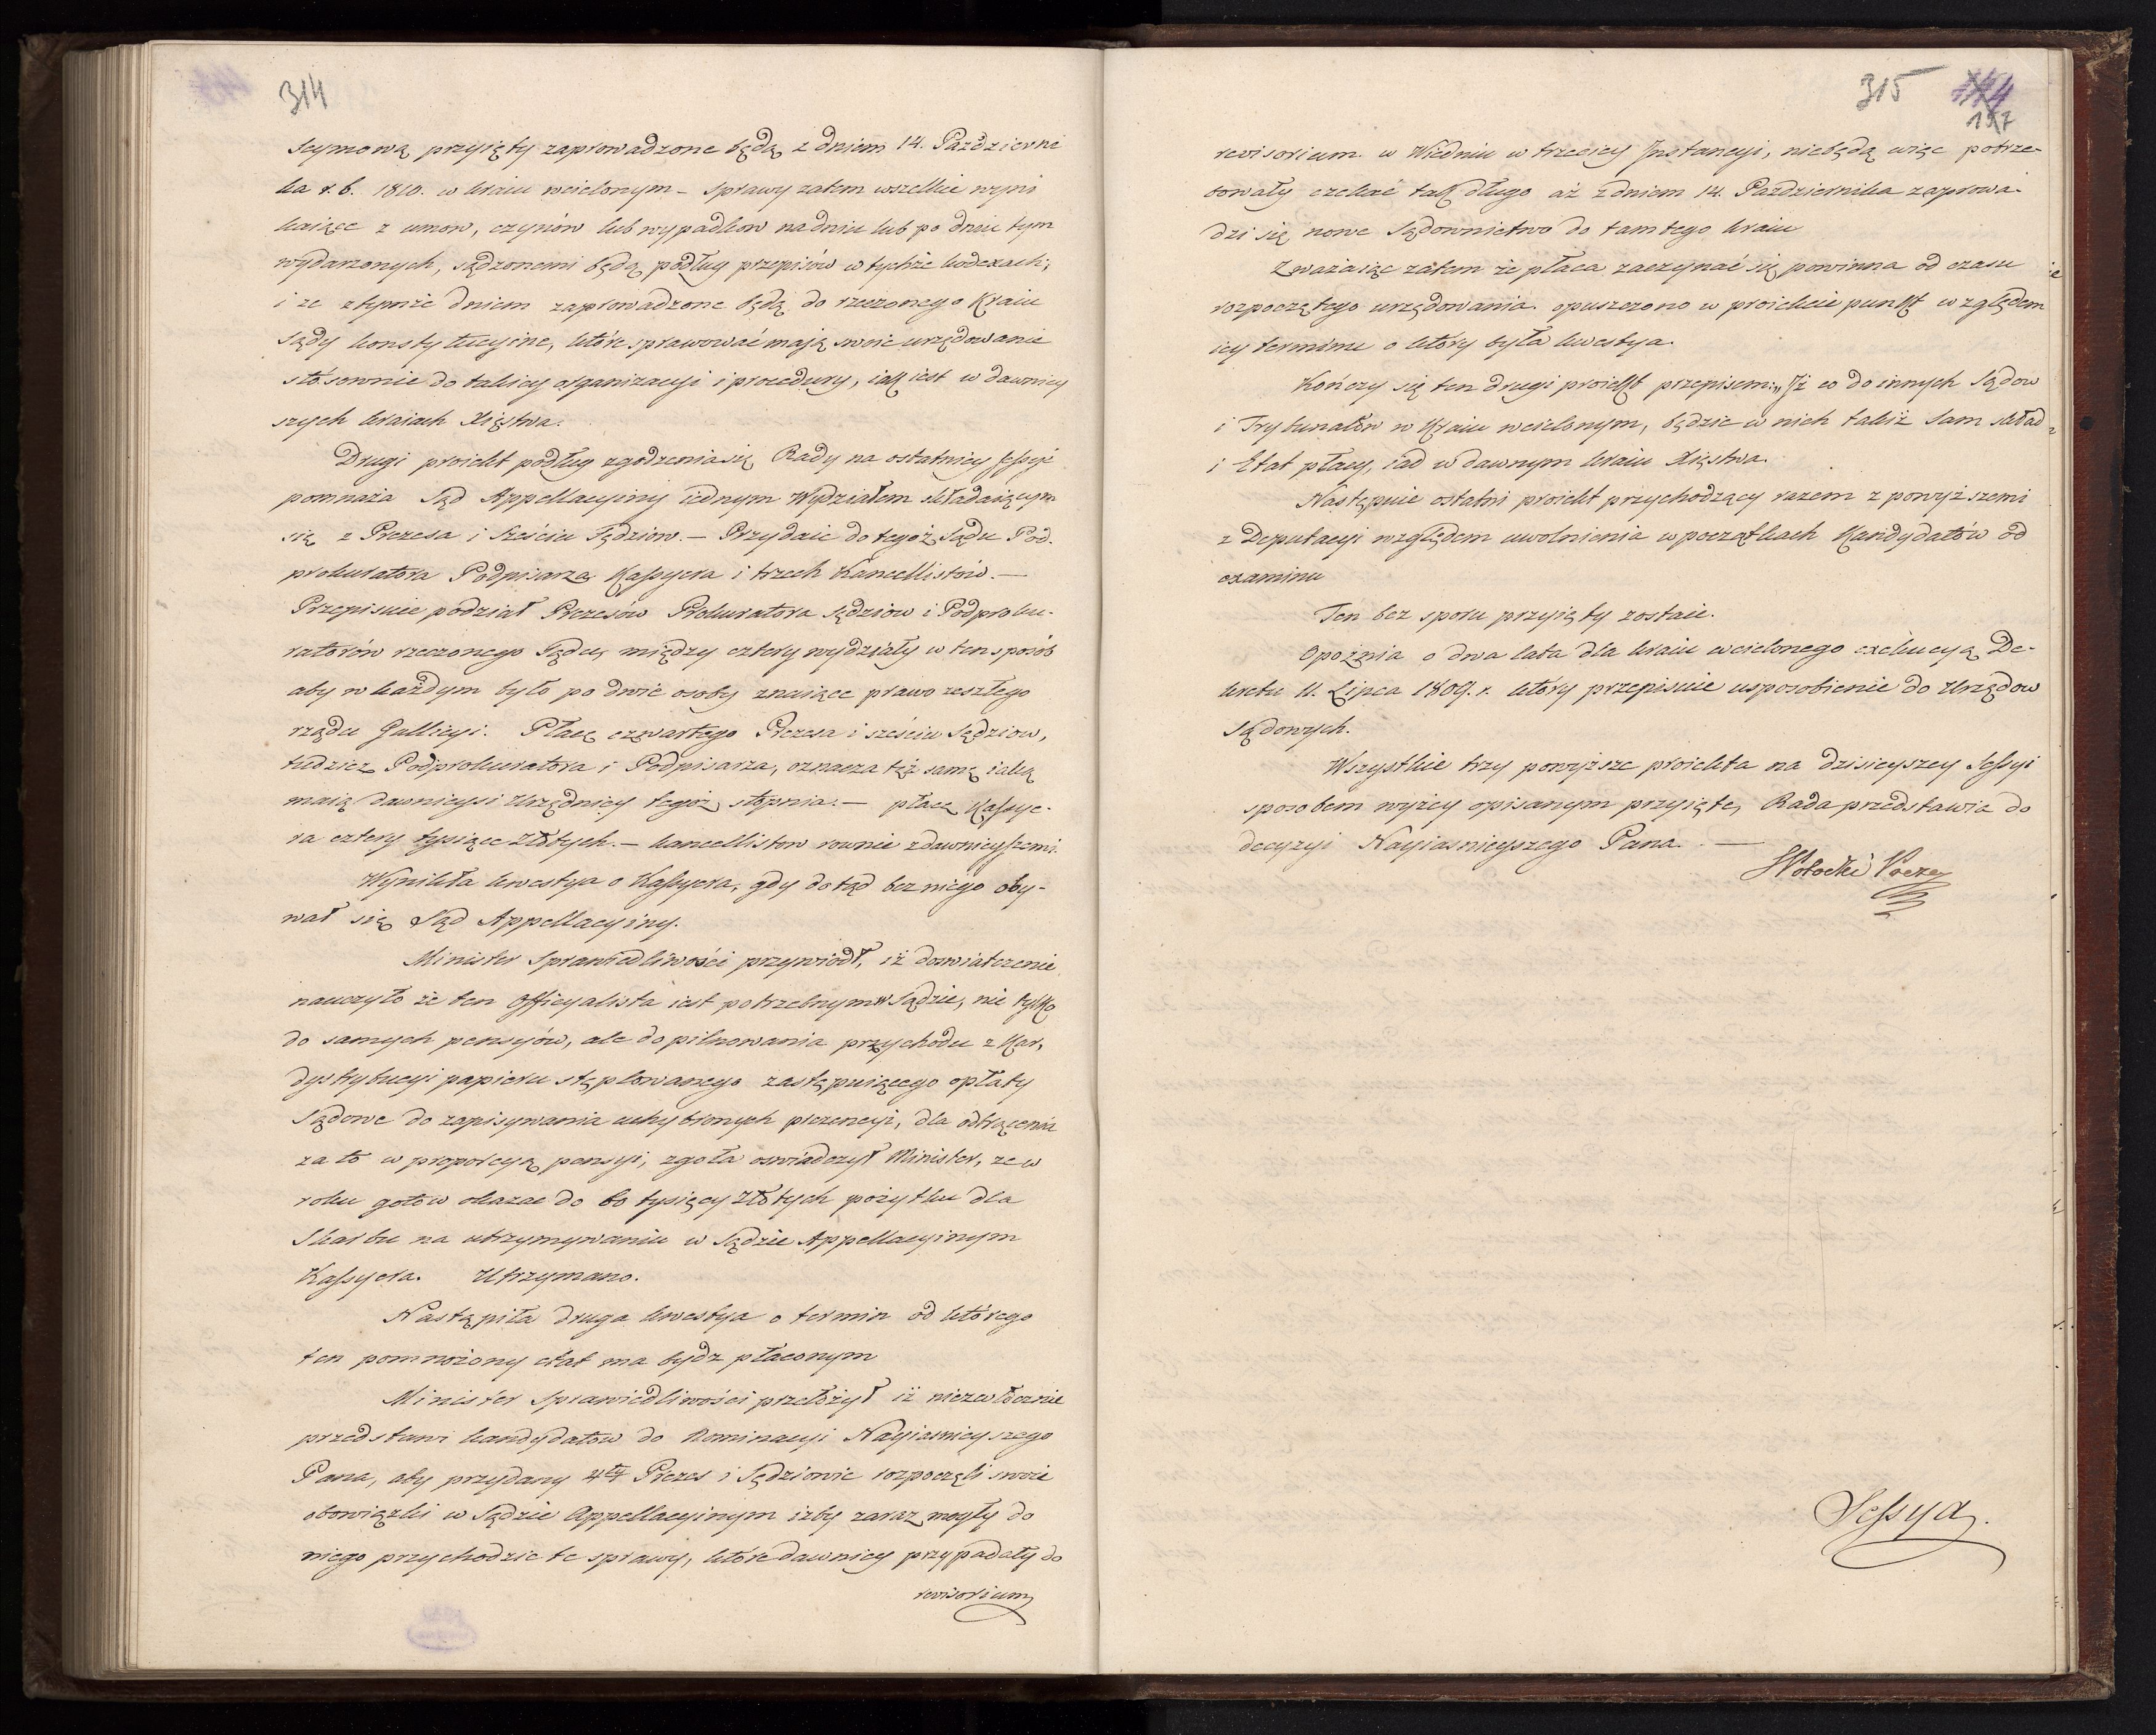 314
Seymową przyięty zaprowadzone będą z dniem 14. Pazdzierni
ka r. b. 1810. w kraiu wcielonym – sprawy zatem wszelkie wyni
kaiące z umow, czynów lub wypadkow na dniu lub po dniu tym
wydarzonych, sądzonemi będą podług przepisów w tychże kodexach;
i ze z tymże dniem zaprowadzone będą do rzeczonego Kraiu
Sądy konstytucyine, które sprawować mają swoie urzędowanie
stosownie do takiey organizacyi i procedury, iak iest w dawniey
szych kraiach Xięstwa.
Drugi proiekt podług zgodzenia się Rady na ostatniey Sessyi
pomnaża Sąd Appellacyiny iednym Wydziałem składaiącym
się z Prezesa i sześciu Sędziow. – Przydaie do tegoż Sądu Pod.
prokuratora Podpisarza Kassyera i trzech Kancellistów. –
Przepisuie podział Prezesów Prokuratora Sędziow i Podproku-
ratorów rzeczonego Sądu, między cztery wydziały w ten sposób
aby w każdym było po dwie osoby znaiące prawo zeszłego
rządu Gallicyi. Płacę czwartego Prezesa i sześciu Sędziow,
tudzież Podprokuratora i Podpisarza, oznacza tęż samę iaką
maią dawnieysi Urzędnicy tegoż stopnia. – płacę Kassye-
ra cztery tysiące Złotych. – kancellistow rownie z dawnieyszemi.
Wynikła kwestya o Kassyera, gdy dotąd bez niego oby-
wał się Sąd Appellacyiny.
Minister Sprawiedliwości przywiodł, iż doswiatczenie
nauczyło że ten Officyalista iest potrzebnym w Sądzie, nie tylko
do samych pensyów, ale do pilnowania przychodu z Kar,
dystrybucyi papieru stęplowanego zastępuiącego opłaty
Sądowe do zapisywania uchybionych prezencyi, dla odtrącenia
za to w proporcyą pensyi, zgoła oswiadczył Minister, ze w
roku gotow okazac do 60 tysięcy Złotych pożytku dla
Skarbu na utrzymywaniu w Sądzie Appellacyinym
Kassyera. Utrzymano.
Nastąpiła druga kwestya o termin od którego
ten pomnożony etat ma bydz płaconym
Minister Sprawiedliwości przełożył iż niezwłocznie
przedstawi kandydatow do Nominacyi Nayiasnieyszego
Pana, aby przydany 4ty Prezes i Sędziowie rozpoczęli swoie
obowiązki w Sądzie Appellacyinym izby zaraz mogły do
niego przychodzic te sprawy, które dawniey przypadały do
revisorium
315 144
157
revisorium w Wiedniu w trzeciey Instancyi, niebędą więc potrze-
bowały czekać tak długo aż z dniem 14. Pazdziernika zaprowa-
dzi się nowe Sądownictwo do tamtego kraiu
Zważaiąc zatem że płaca zaczynać się powinna od czasu
rozpoczętego urzędowania opuszczono w proiekcie punkt względem
iey terminu o który była kwestya.
Kończy się ten drugi proiekt przepisem: „Iż co do innych Sądow
i Trybunałow w Kraiu wcielonym, będzie w nich takiż sam skład
i Etat płacy, iak w dawnym kraiu Xięstwa.
Następnie ostatni proiekt przychodzący razem z powyższemi
z Deputacyi względem uwolnienia w początkach Kandydatów od
examinu
Ten bez sporu przyięty zostaie.
Opożnia o dwa lata dla kraiu wcielonego exekucyą De-
kretu 11. Lipca 1809. r. który przepisuie usposobienie do Urzędow
Sądowych.
Wszystkie trzy powyższe proiekta na dzisieyszey Sessyi
sposobem wyżey opisanym przyięte, Rada przedstawia do
decyzyi Nayiasnieyszego Pana. –
Sessya.